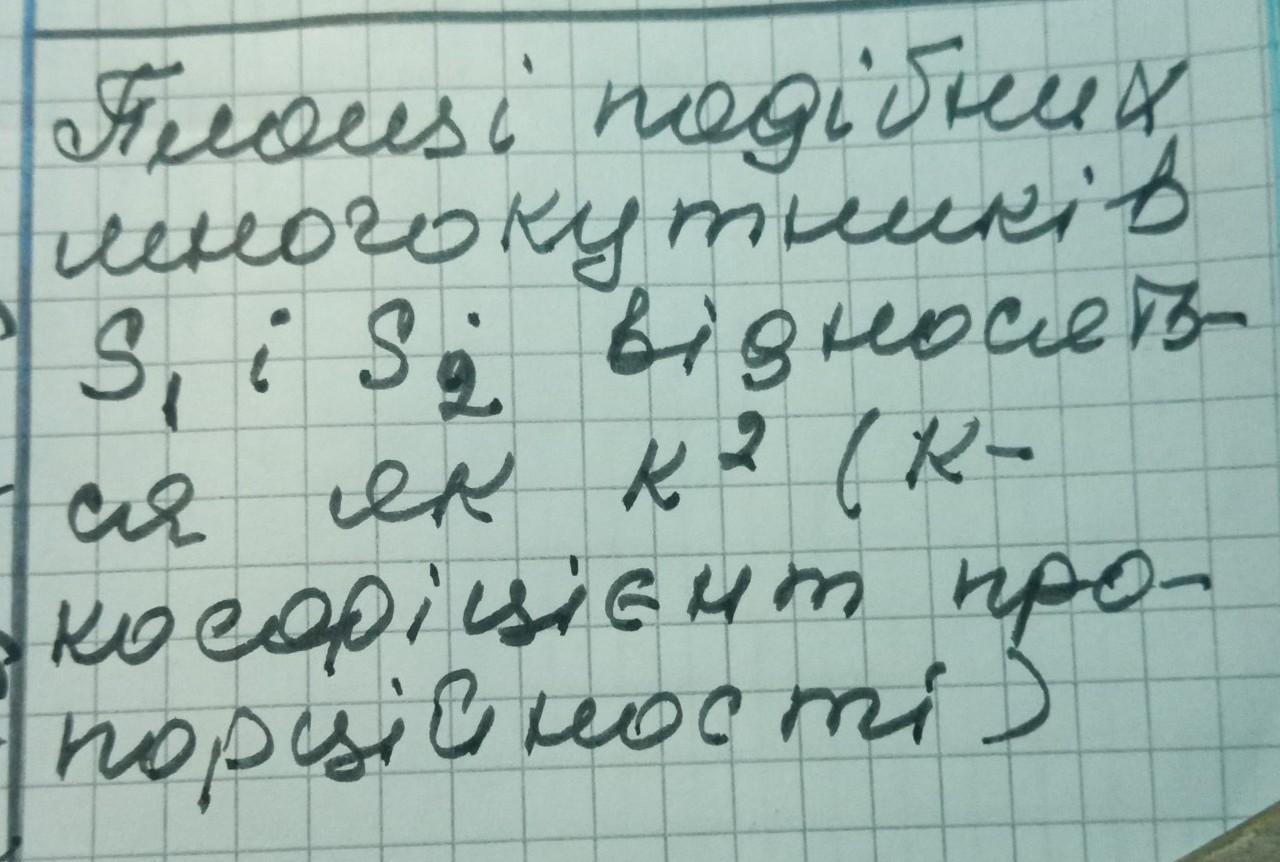 Площі подібних
многокутників
S₁ і S₂ відносять-
ся як к² (к-
коефіцієнт про-
порційності)